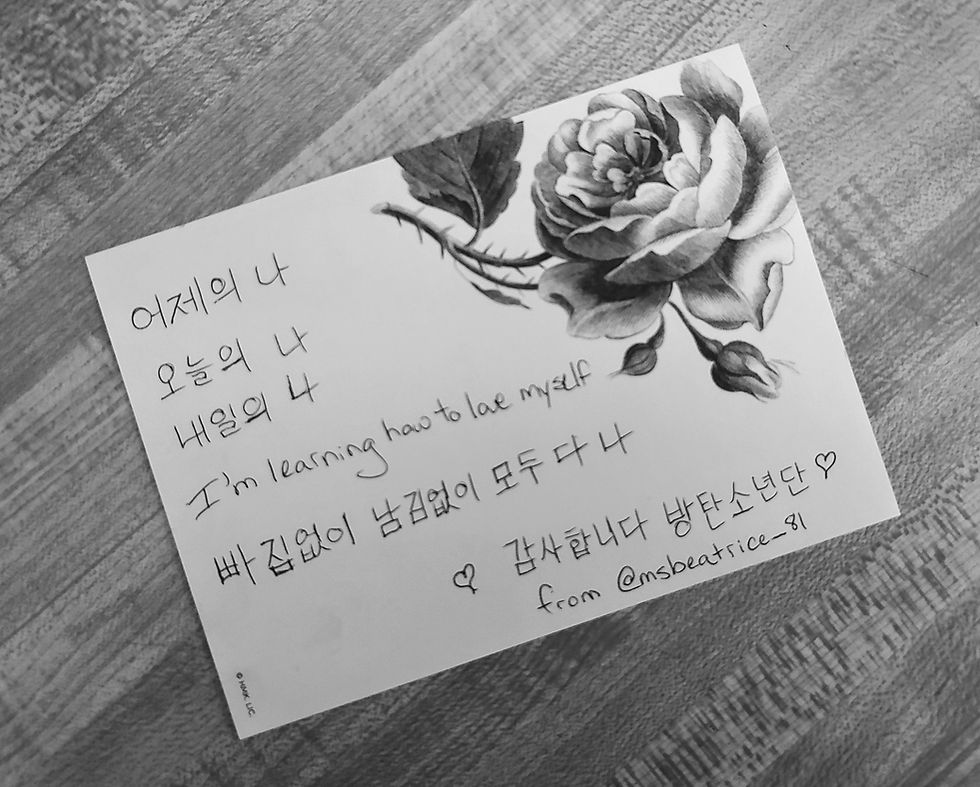 어제의 나
오늘의 나
내일의 나
I'm learning how to love myself
빠짐없이 남김없이 모두 다 나
♡ 감사합니다 방탄소년단 ♡
from @msbeatrice_81
© HMK. LIC.